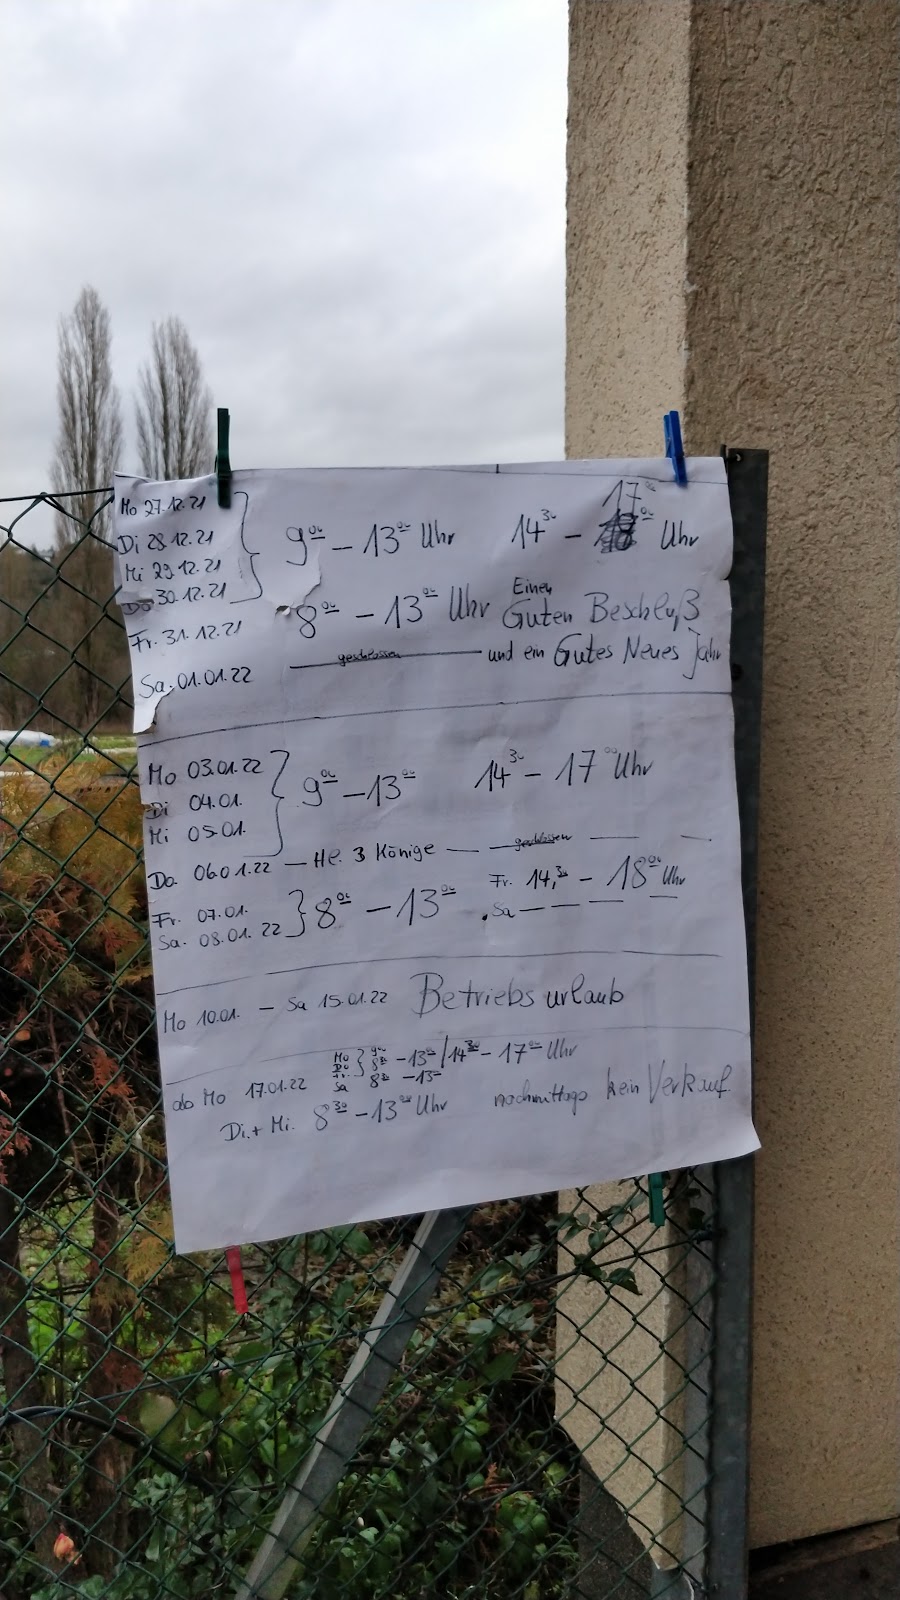 Mo 27.12.21
Di 28.12.21
Mi 29.12.21
Do 30.12.21
9⁰⁰ – 13⁰⁰ Uhr 14³⁰ – 17⁰⁰ Uhr
Fr. 31.12.21 8⁰⁰ – 13⁰⁰ Uhr Einen Guten Beschluß
Sa. 01.01.22 geschlossen und ein Gutes Neues Jahr
Mo 03.01.22
Di 04.01.
Mi 05.01.
9⁰⁰ – 13⁰⁰ 14³⁰ – 17⁰⁰ Uhr
Do. 06.01.22 – Hl. 3 Könige – geschlossen –
Fr. 07.01.
Sa. 08.01.22
8⁰⁰ – 13⁰⁰ Fr. 14,³⁰ – 18⁰⁰ Uhr
Sa – – – –
Mo 10.01. – Sa 15.01.22 Betriebsurlaub
ab Mo 17.01.22
Mo 9⁰⁰
Do
Fr. 8³⁰ – 13⁰⁰ / 14³⁰ – 17⁰⁰ Uhr
Sa 8³⁰ – 13⁰⁰
Di. + Mi. 8³⁰ – 13⁰⁰ Uhr nachmittags kein Verkauf.